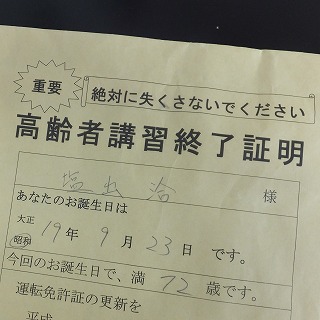 重要
絶対に失くさないでください
高齢者講習終了証明
塩出 治 様
あなたのお誕生日は
大正
昭和 19年 9月 23日 です。
今回のお誕生日で、満 72 歳です。
運転免許証の更新を
平成